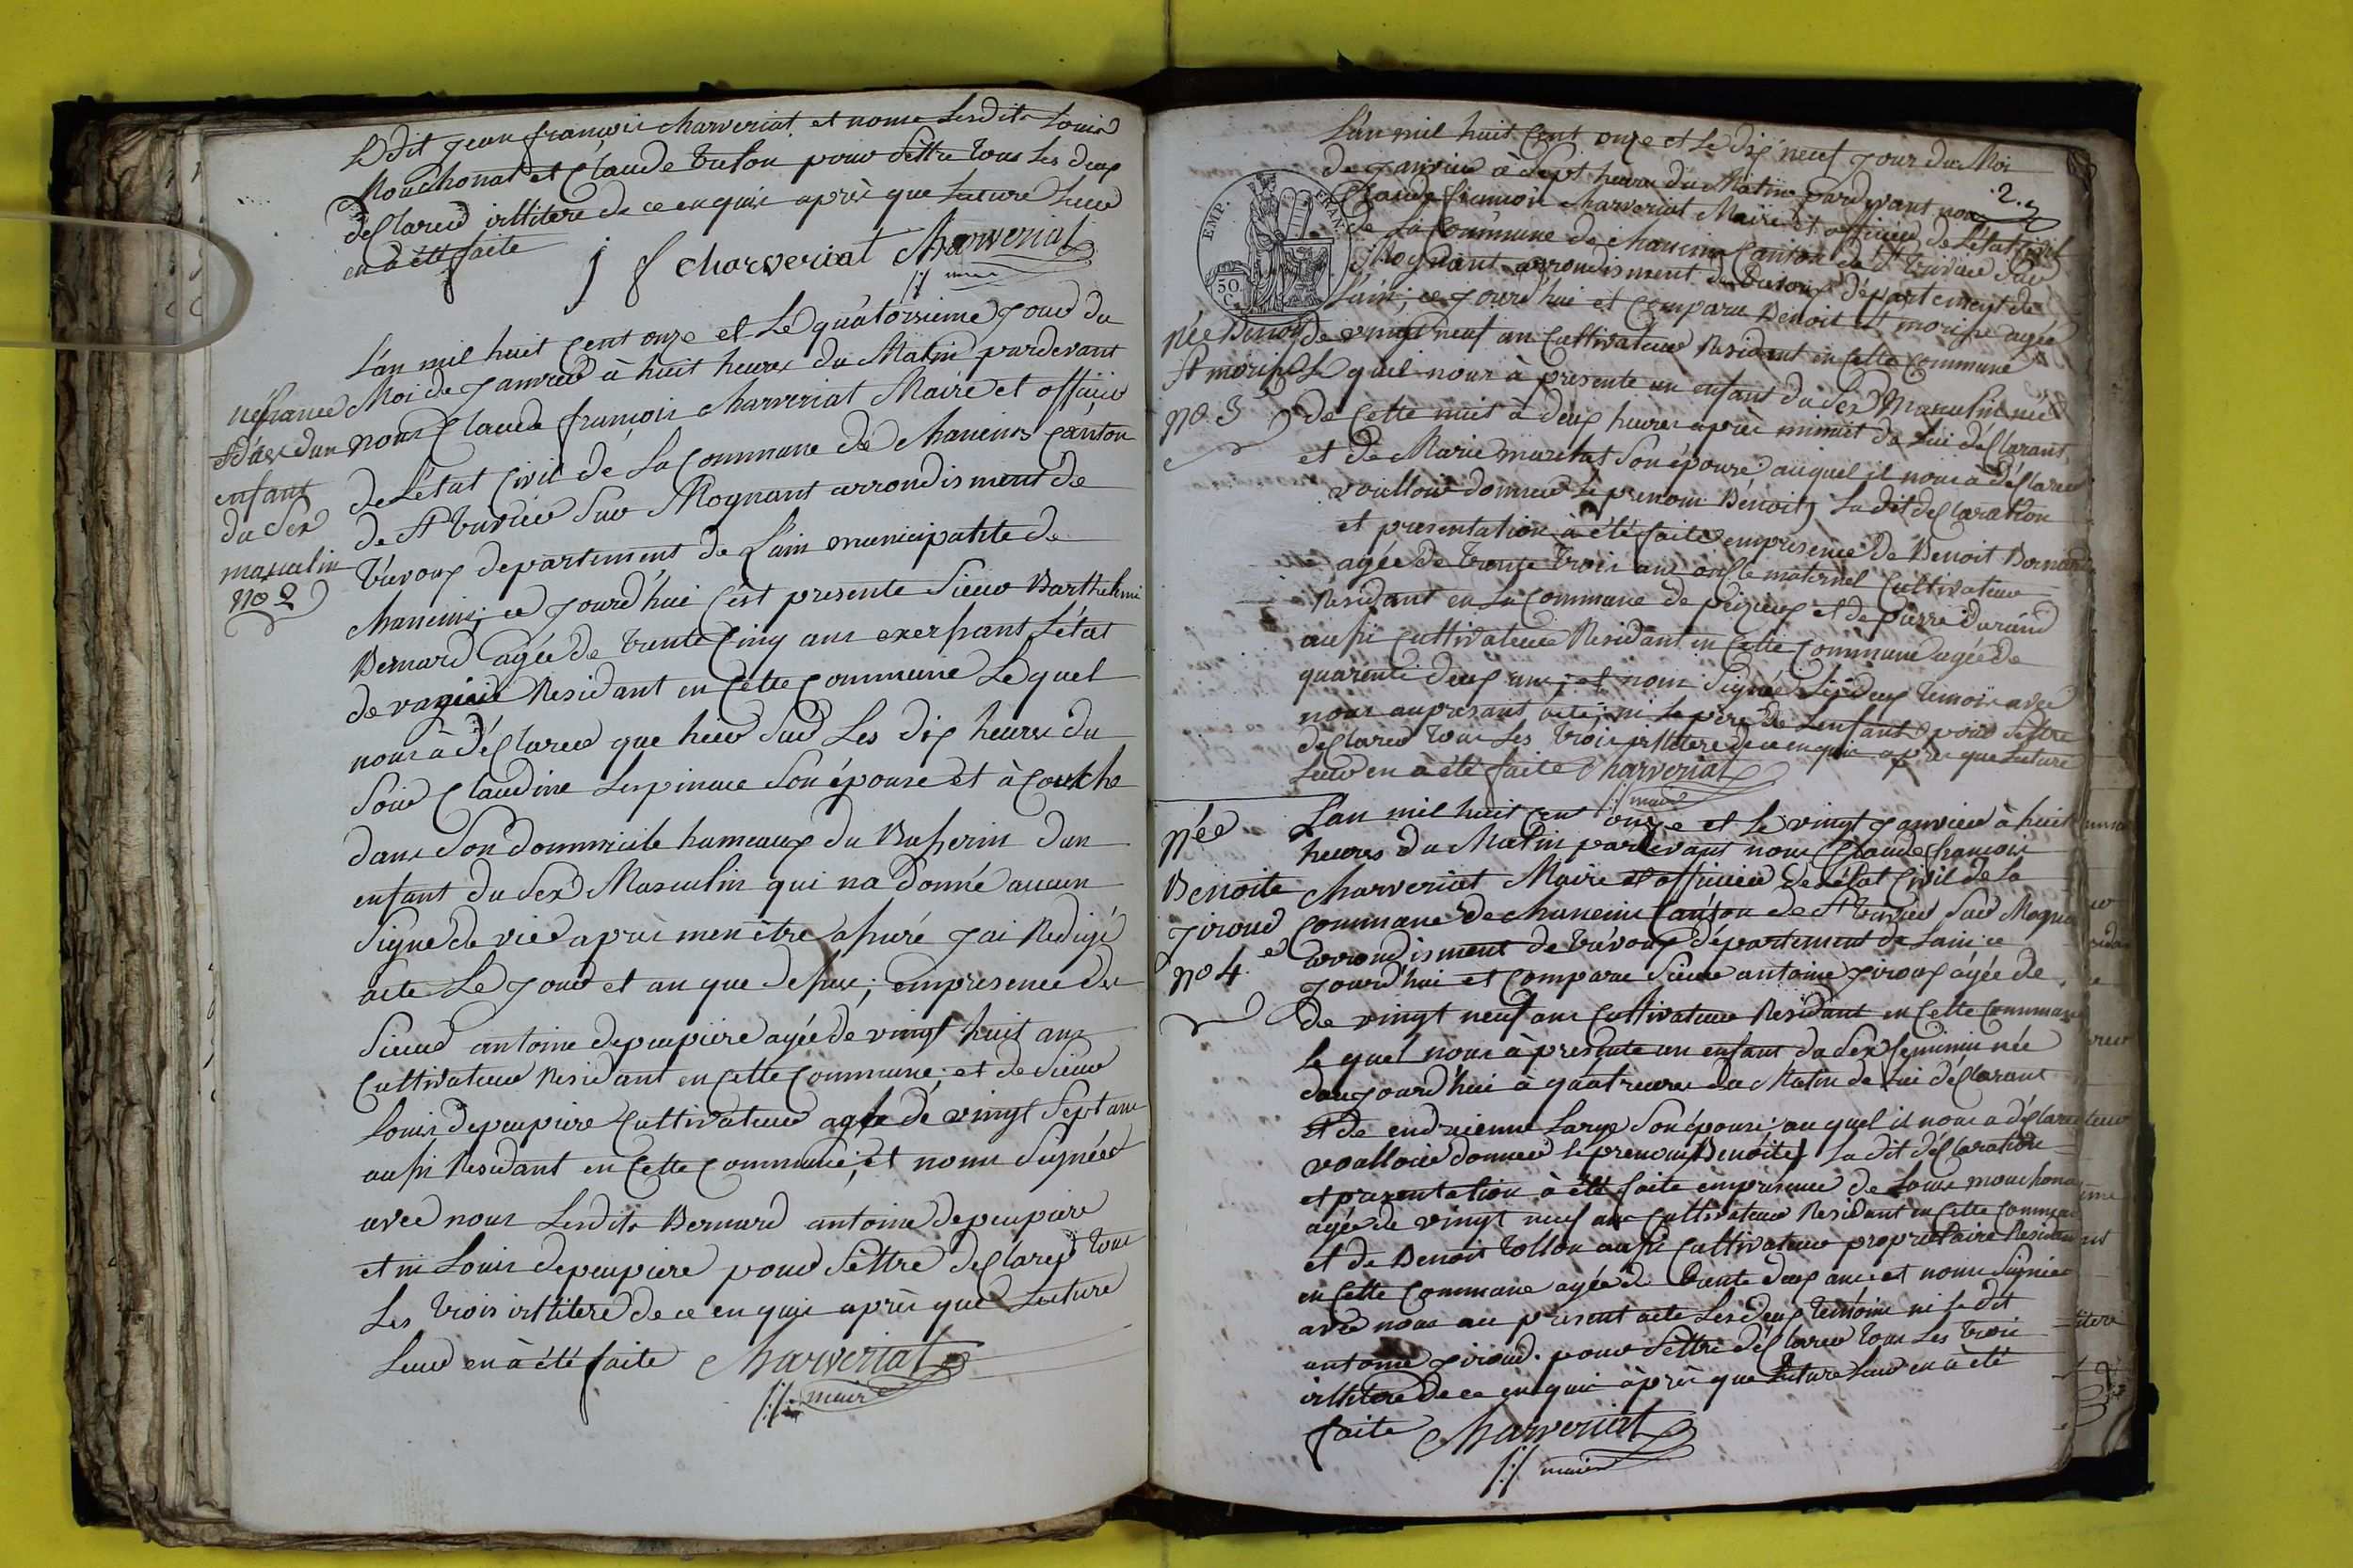 Le dit jean françois charveriat et nome Lesdits Louis
Mouchonat et Claude trelon pour Settre tous Les deux
declareu illitere de ce enquis après que Luture Lieu
en à été faite
j f charveriat Charveriat
maire
L'an mil huit cent onze et Le quatorsieme jour du
Moi de janvier à huit heures du Matin pardevant
nous Claude françois charveriat Maire et officier
de L'état Civil de La Commune de chaneins canton
de St trivier Sur Mognant arrondisment de
trévoux departement de L'ain municipalité de
chaneins; ce jourd'hui C'est presente Sieur Barthelemi
Bernard agée de trente Cinq ans exersant L'état
de Residant en Cette Commune Le quel
nous à déclareu que hier Sur Les dix heures du
Soir Claudine Lespinace Son épouse et à couche
dans Son dommicile hameaux du d'un
enfant du Sex Masculin qui na donné aucun
Signe de vie après men être asuré j'ai Redigé
acte Le jour et an que desus; empresence du
Sieur antoine depeupiere agée de vingt huit ans
Cultivateur Residant en Cette Commune; et de Sieur
Louis depeupiere Cultivateur agée de vingt Sept ans
ausi Residant en Cette Commune; et nonu Signéed
avec nous Lesdits Bernard antoine depeupiere
et ni Louis depeupiere pour Settre declareu tous
Les trois illitere de ce en quis après que Luture
Lieu en à été faite Charveriat
maire
nessance
enfant
du Sex
masculin
no 2
2.
EMP. FRAN.
50
C.
L'an mil huit Cent onze et Le dix neuf jour du Moi
de janvier à Sept heures du Matin pardevant nous
Claude françois Charveriat Maire et officier de L'état civil
de La Commune de chaneins Canton de St trivier Sur
Mognant arrondisment de trevoux département de
L'ain; ce jourd'hui et Comparu Benoit St morise agée
de vingt neuf an Cultivateur Residant en Cette Commune
Le quel nous à presente un enfant du Sex Masculin née
de Cette nuit à deux heures après minuit de Lui déclarant
et de Marie Son épouse auquel il nous à déclareu
voulloir donneu Le prenom Benoit, La dit declaration
et presentation à été faite empresence de Benoit Bernard
agée de trente trois ans oncle maternel Cultivateur
Residant en La Commune de peizieux et de pierre durand
ausi Cultivateur Residant en Cette Commune agée de
quarente deux ans; et nonu Signée Les deux temoin avec
nous aupresant acte; ni Le pere de L'enfant pour Settre
declareu tous Les trois illitere de ce en quis après que Luture
Lieu en à été faite Charveriat
maire
née Benoit
St morise
No. 3
L'an mil huit Cent onze et Le vingt janvier à huit
heures du Matin pardevant nous Claude françois
charveriat Maire et officier de L'état Civil de La
Commune de chaneins Canton de St trivier Sur Mogna
arrondisment de trévoux département de L'ain; ce
jourd'hui et Comparu Sieur antoine giroux agée de
de vingt neuf ans Cultivateur Residant en Cette Commune
Le quel nous à presente un enfant du Sex feminin née
daujourd'hui à quatreures du Matin de Lui déclarant
et de endrienne Large Son épouse; auquel il nous a déclareu
voulloir donneu Le prenom Benoite, La dit déclaration
et prezentation à été faite empresence de Louis mouchona
agée de vingt neuf ans Cultivateur Residant en Cette Commune
et de Benoit tollon ausi Cultivateur propriétaire Residant
en Cette Commune agée de trente deux ans et nonu Signée
avec nous au present acte Les deux temoins ni Le dit
antoine giroud. pour Settre déclareu tous Les trois
illitere de ce enquis après que Luture Lieu en à été
faite Charveriat
maire
née
Benoite
giroud
no 4.